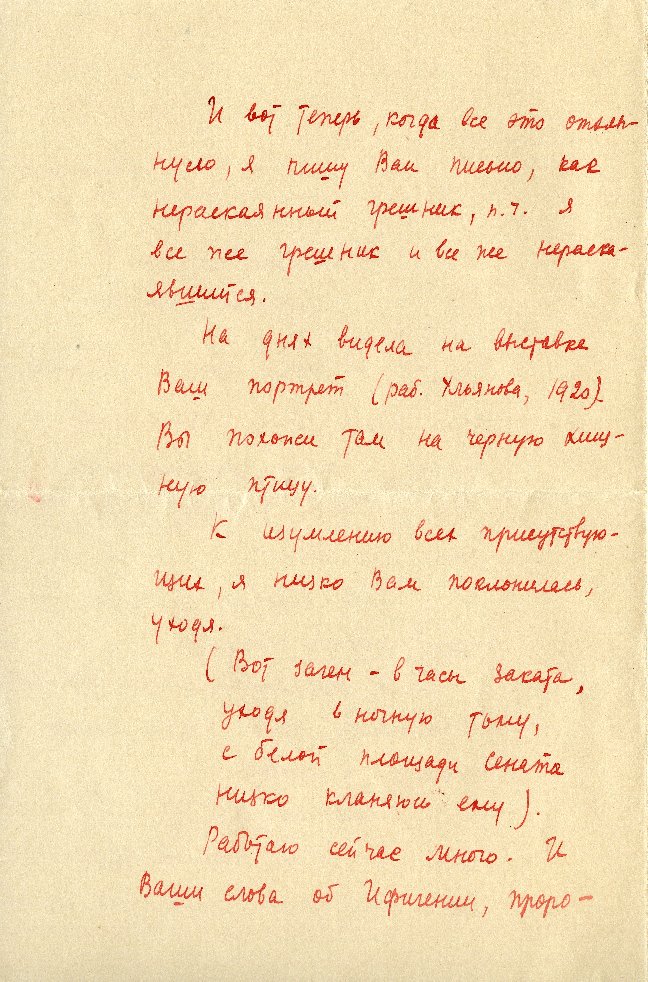 И вот теперь, когда все это отхлы-
нуло, я пишу Вам письмо, как
нераскаянный грешник, п.ч. я
все же грешник и все же нераска-
явшийся.
На днях видела на выставке
Ваш портрет (раб. Ульянова, 1920)
Вы похожи там на черную хищ-
ную птицу.
К изумлению всех присутствую-
щих, я низко Вам поклонилась,
уходя.
(Вот зачем – в часы заката,
уходя в ночную тьму,
с белой площади Сената
низко кланяюсь ему).
Работаю сейчас много. И
Ваши слова об Ифигении, проро-